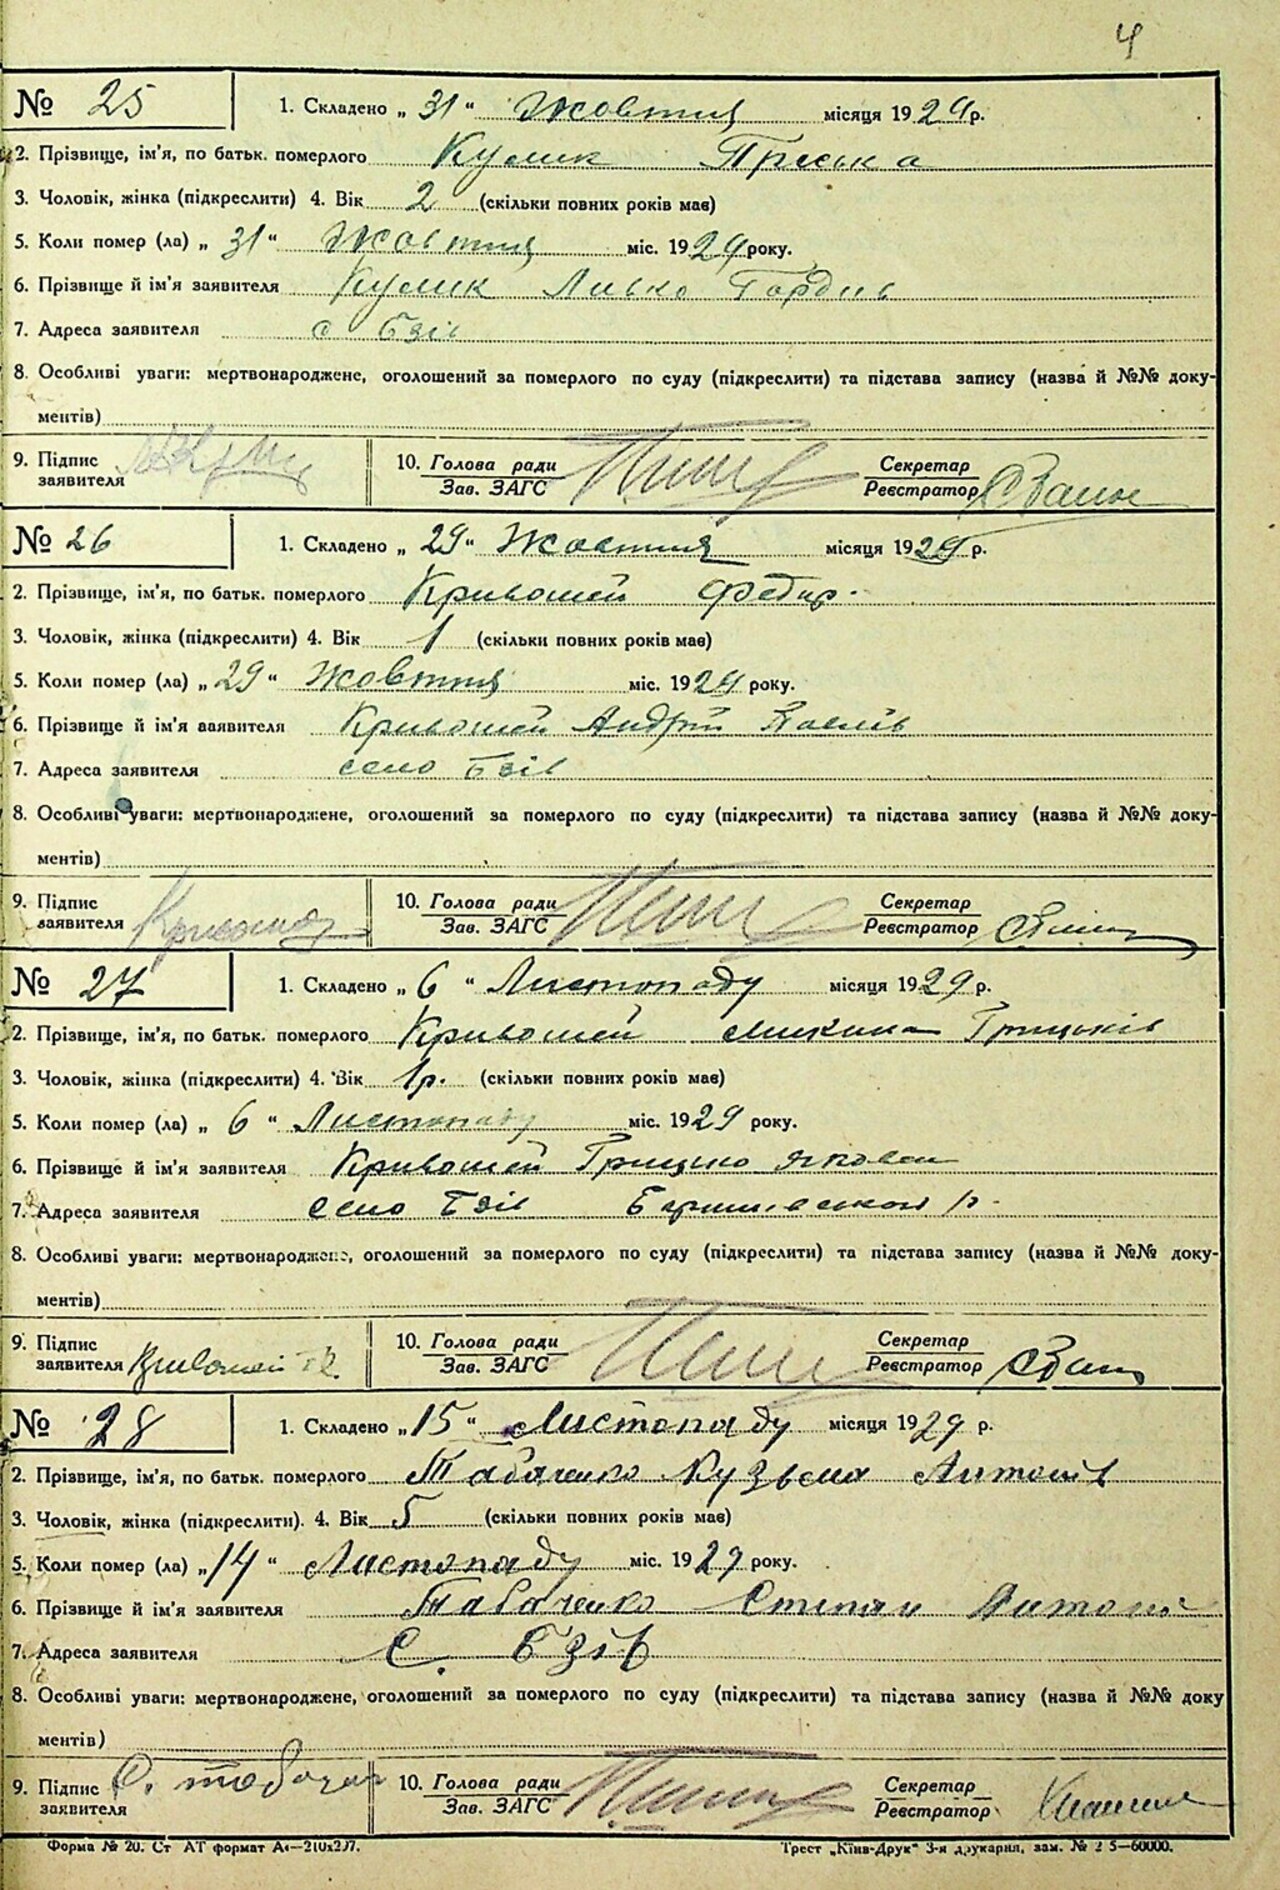 4
№ 25 1. Складено „ 31 “ Жовтня місяця 1929 р.
2. Прізвище, ім'я, по батьк. померлого Кулик Пріська
3. Чоловік, жінка (підкреслити) 4. Вік 2 (скільки повних років має)
5. Коли помер (ла) „ 31 “ Жовтня міс. 1929 року.
6. Прізвище й ім'я заявителя Кулик Гордіїв
7. Адреса заявителя с Бзів
8. Особливі уваги: мертвонароджене, оголошений за померлого по суду (підкреслити) та підстава запису (назва й №№ доку-
ментів)
9. Підпис заявителя 10. Голова ради Зав. ЗАГС Секретар Реєстратор
№ 26 1. Складено „ 29 “ Жовтня місяця 1929 р.
2. Прізвище, ім'я, по батьк. померлого Кривошей Федир
3. Чоловік, жінка (підкреслити) 4. Вік 1 (скільки повних років має)
5. Коли помер (ла) „ 29 “ Жовтня міс. 1929 року.
6. Прізвище й ім'я заявителя Кривошей Андрій Павлів
7. Адреса заявителя село Бзів
8. Особливі уваги: мертвонароджене, оголошений за померлого по суду (підкреслити) та підстава запису (назва й №№ доку-
ментів)
9. Підпис заявителя 10. Голова ради Зав. ЗАГС Секретар Реєстратор
№ 27 1. Складено „ 6 “ Листопаду місяця 1929 р.
2. Прізвище, ім'я, по батьк. померлого Кривошей Микита Грицьків
3. Чоловік, жінка (підкреслити) 4. Вік 1р. (скільки повних років має)
5. Коли помер (ла) „ 6 “ Листопаду міс. 1929 року.
6. Прізвище й ім'я заявителя Кривошей Грицько
7. Адреса заявителя село Бзів р.
8. Особливі уваги: мертвонароджене, оголошений за померлого по суду (підкреслити) та підстава запису (назва й №№ доку-
ментів)
9. Підпис заявителя Кривошей 10. Голова ради Зав. ЗАГС Секретар Реєстратор
№ 28 1. Складено „ 15 “ Листопаду місяця 1929 р.
2. Прізвище, ім'я, по батьк. померлого Табаченко Кузьма Антонів
3. Чоловік, жінка (підкреслити). 4. Вік 5 (скільки повних років має)
5. Коли помер (ла) „ 14 “ Листопаду міс. 1929 року.
6. Прізвище й ім'я заявителя Табаченко Степан Антонів
7. Адреса заявителя с. Бзів
8. Особливі уваги: мертвонароджене, оголошений за померлого по суду (підкреслити) та підстава запису (назва й №№ доку
ментів)
9. Підпис заявителя 10. Голова ради Зав. ЗАГС Секретар Реєстратор
Форма № 20. Ст АТ формат А4—210х297. Трест „Київ-Друк“ 3-я друкарня, зам. №